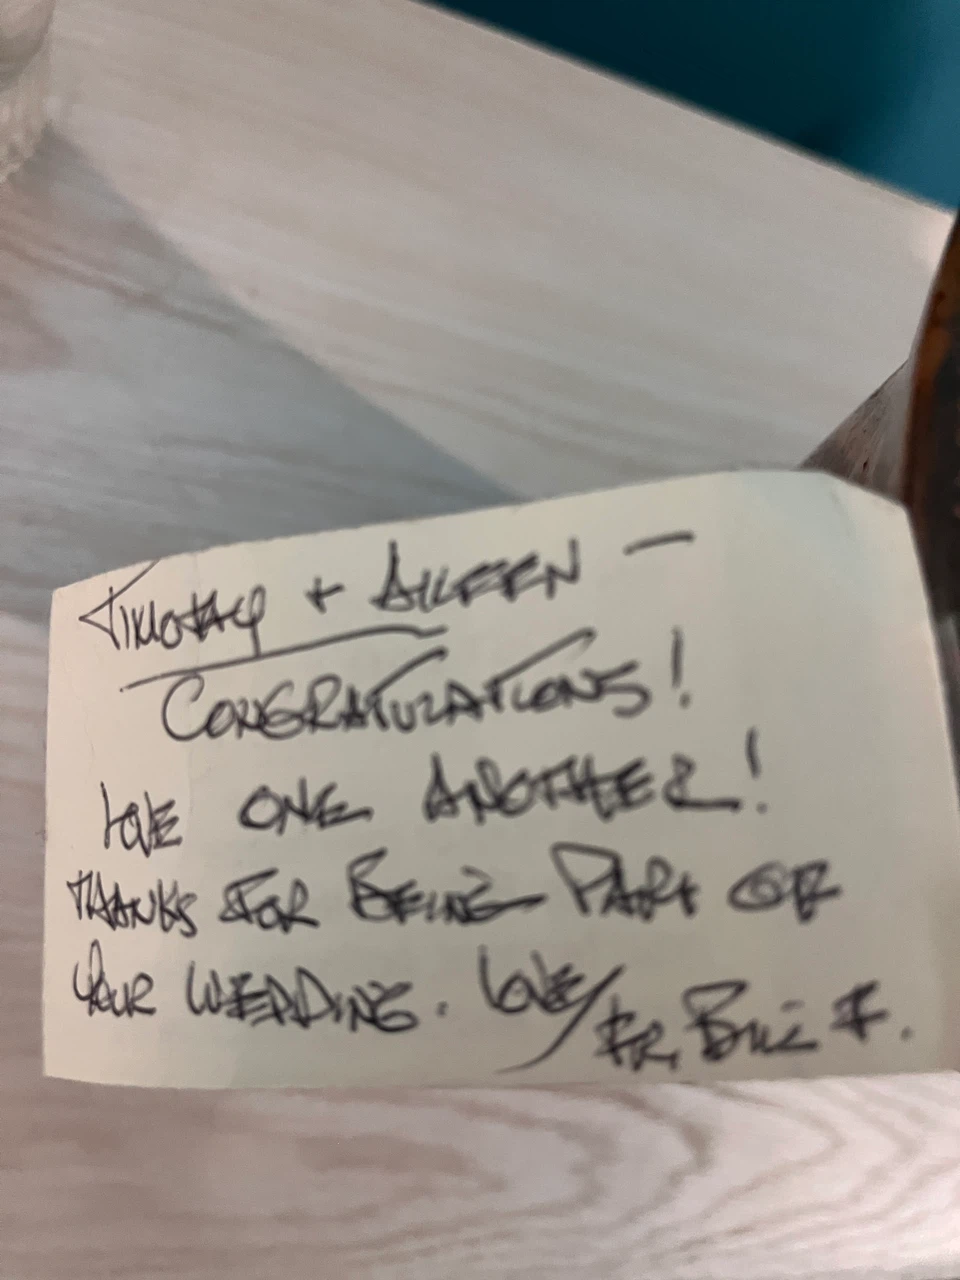 TIMOTHY + AILEEN —
CONGRATULATIONS!
LOVE ONE ANOTHER!
THANKS FOR BEING PART OF
YOUR WEDDING. LOVE,
FR. BILL F.